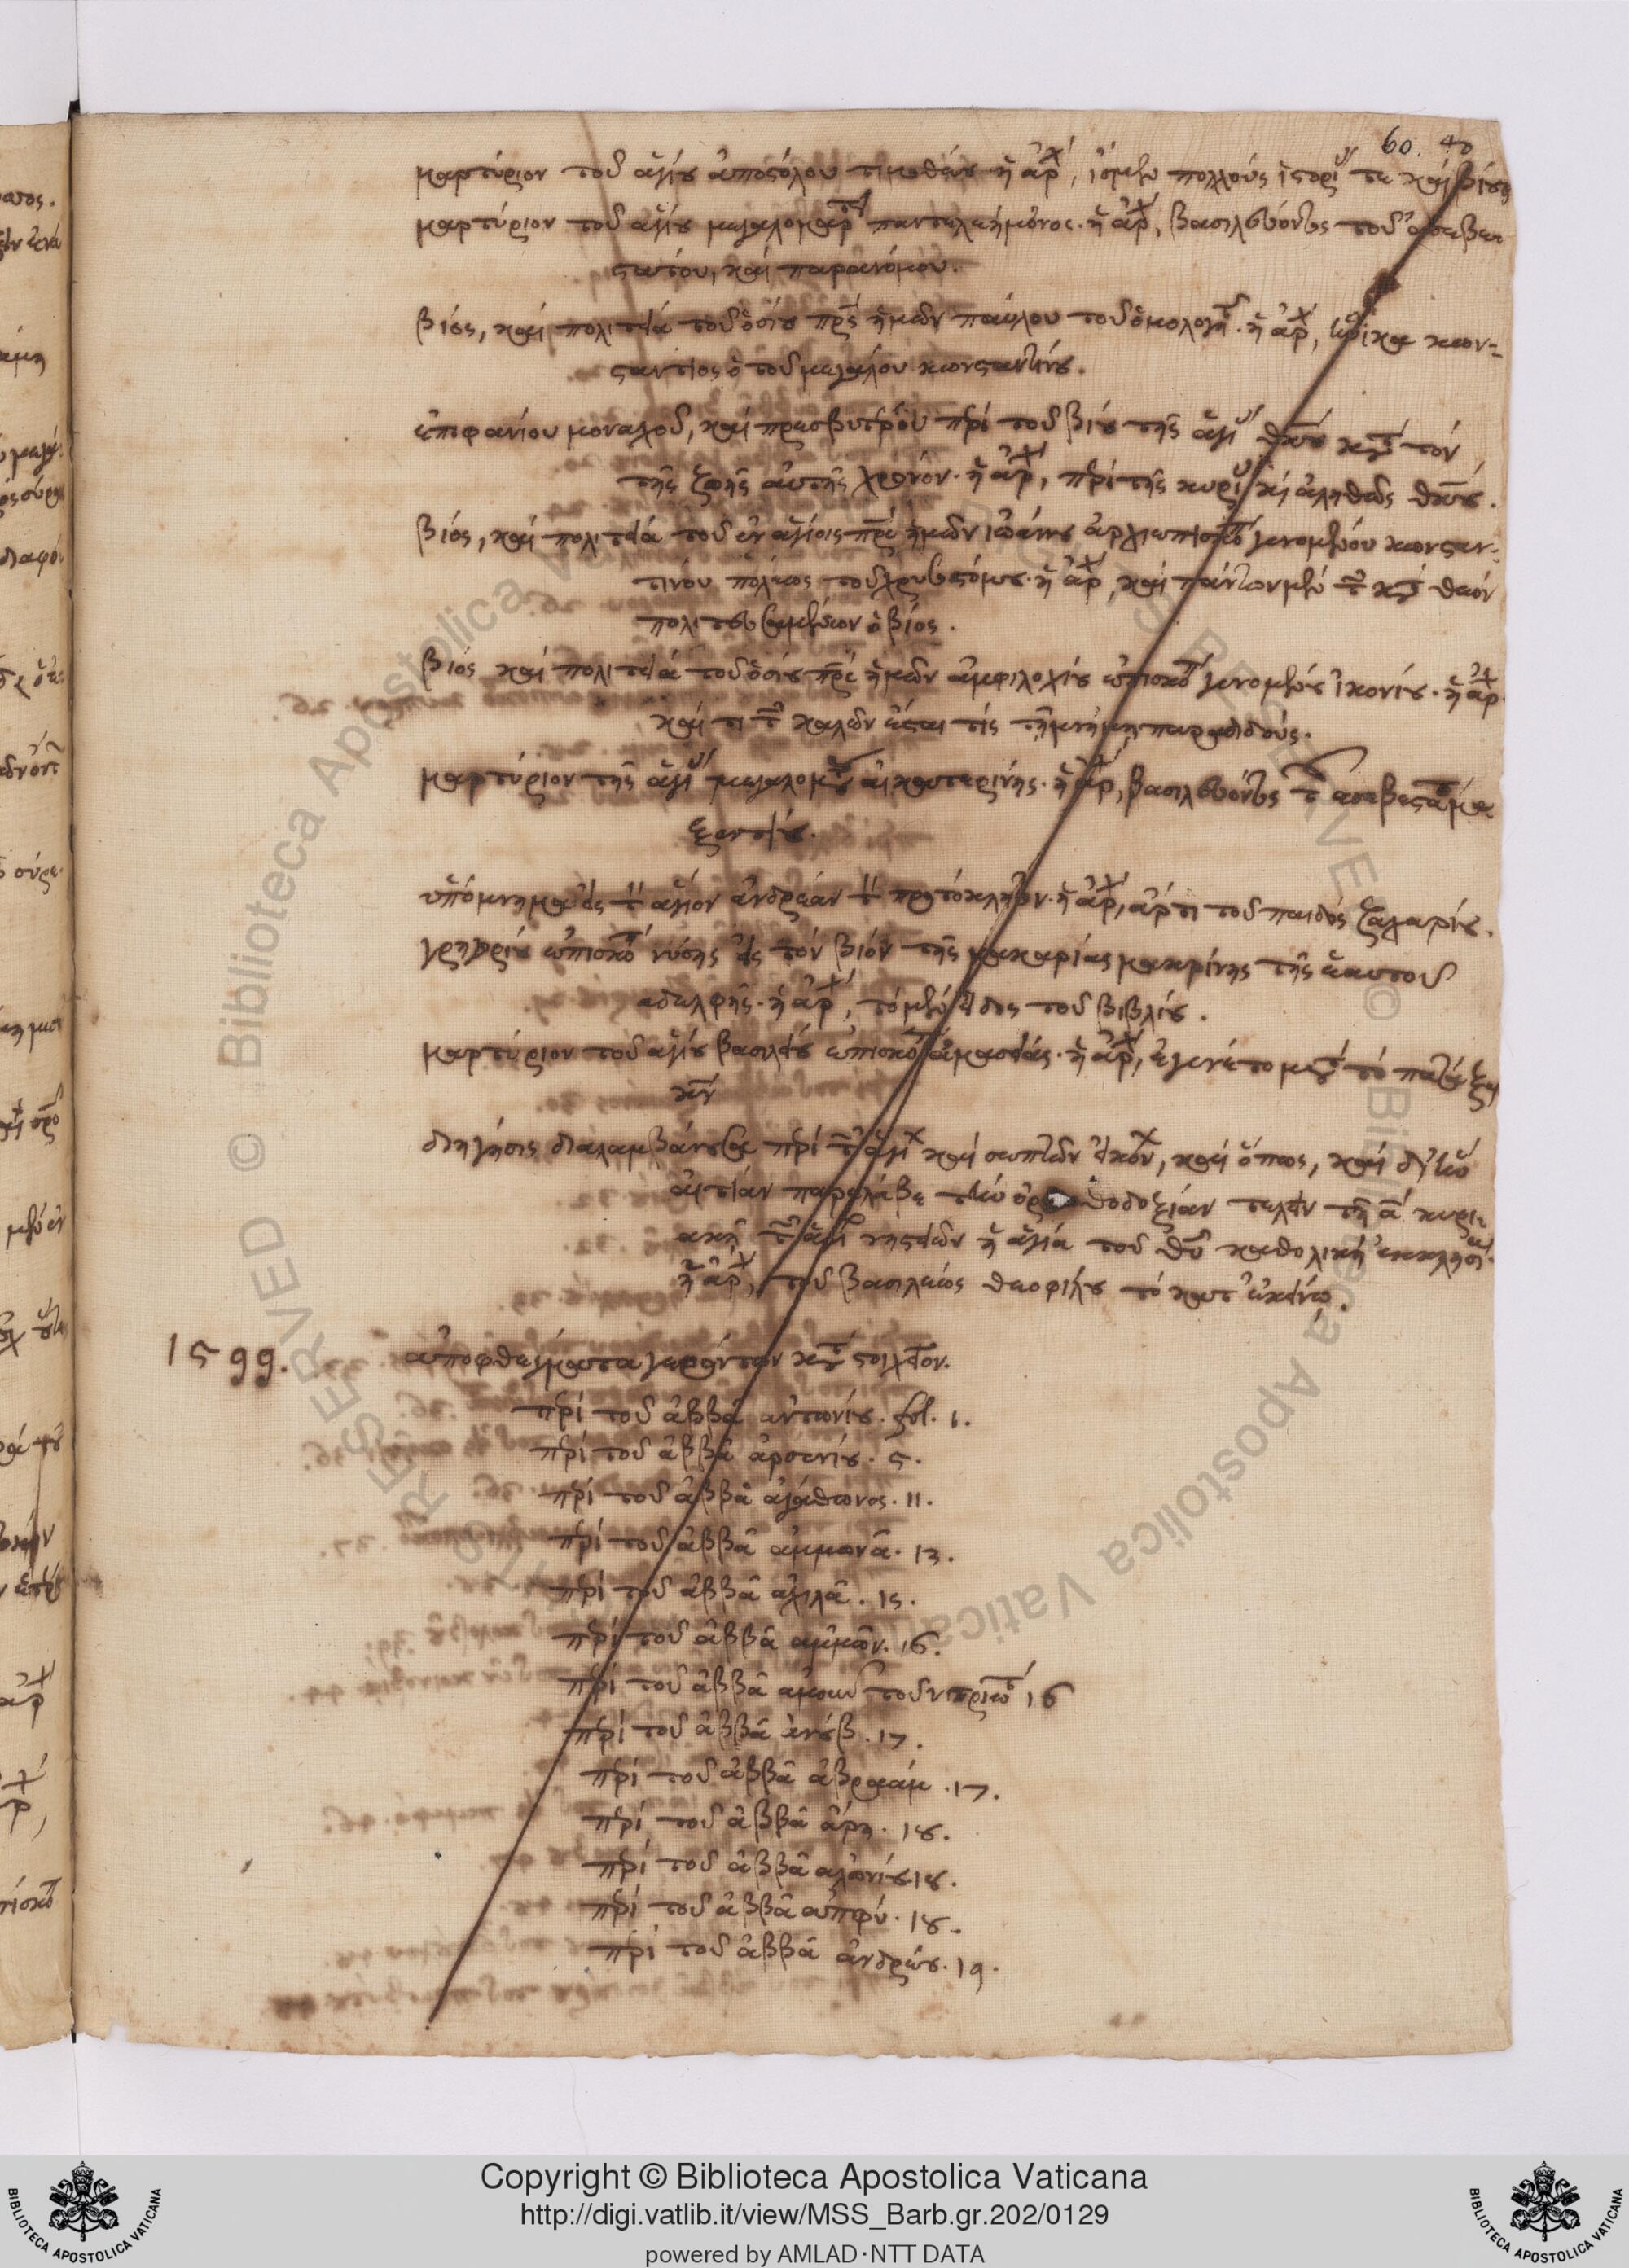 60. 40
μαρτύριον τοῦ ἁγίου ἀποστόλου τιμοθέου· ἡ ἀρχ, ἴσμεν πολλοὺς ἱστορι τε καὶ βίους
μαρτύριον τοῦ ἁγίου μεγαλομαρ παντελεήμονος· ἡ ἀρχ, βασιλεύοντος τοῦ ἀσεβε
στάτου, καὶ παρανόμου.
βίος, καὶ πολιτεία τοῦ ὁσίου πρς ἡμῶν παύλου τοῦ ὁμολογη. ἡ ἀρχ, ἡνίκα κων-
στάντιος ὁ τοῦ μεγάλου κωνσταντίνου.
ἐπιφανίου μοναχοῦ, καὶ πρεσβυτέρου περὶ τοῦ βίου τῆς ἁγι θκου κατ τὸν
τῆς ζωῆς αὐτῆς χρόνον· ἡ ἀρχ, περὶ τῆς κυρι κὶ ἀληθῶς θκου.
βίος, καὶ πολιτεία τοῦ ἐν ἁγίοις πρς ἡμῶν ἰωάννου ἀρχιεπισκο γενομένου κωνσταν-
τίνου πόλεως τοῦ χρυσοστόμου· ἡ ἀρχ, καὶ πάντων μὲν τ κατ θεὸν
πολιτευσαμένων ὁ βίος.
βίος καὶ πολιτεία τοῦ ὁσίου πρς ἡμῶν ἀμφιλοχίου ἐπισκο γενομένου ἰκονίου· ἡ ἀρχ
καὶ τι τ καλῶν ἔσται τίς τῇ μνήμῃ παραδιδούς.
μαρτύριον τῆς ἁγι μεγαλομ αἰκατερίνης· ἡ ἀρχ, βασιλεύοντος τ ἀσεβεστα μα
ξεντίου.
ὑπόμνημα εἰς τ ἅγιον ἀνδρέαν τ πρωτόκλητον· ἡ ἀρχ, ἄρτι τοῦ παιδὸς ζαχαρίου.
γρηγορίου ἐπισκο νύσης εἰς τὸν βίον τῆς μακαρίας μακρίνης τῆς ἑαυτοῦ
ἀδελφῆς· ἡ ἀρχ, τὸ μὲν εἶδος τοῦ βιβλίου.
μαρτύριον τοῦ ἁγίου βασιλέως ἐπισκο ἀμασείας· ἡ ἀρχ, ἐγένετο μετ τὸ
διήγησις διαλαμβάνουσα περὶ τ ἁγι καὶ σεπτῶν εἰκον, καὶ ὅπως, καὶ δι' ἣν
αἰτίαν παρέλαβε τὴν ὀρθοδοξίαν τελεῖν τῇ α κυρι-
ακῇ τ ἁγι νηστειῶν ἡ ἁγία τοῦ θυ καθολικὴ ἐκκλησι.
ἡ ἀρχ, τοῦ βασιλέως θεοφίλου τὸ κατ' ἐκεῖνο.
1599. ἀποφθέγματα γερόντων κατ στοιχεῖον.
περὶ τοῦ ἀββᾶ ἀντωνίου. fol. 1.
περὶ τοῦ ἀββᾶ ἀρσενίου. 5.
περὶ τοῦ ἀββᾶ ἀγάθωνος. 11.
περὶ τοῦ ἀββᾶ ἀμμωνᾶ. 13.
περὶ τοῦ ἀββᾶ ἀχιλᾶ. 15.
περὶ τοῦ ἀββᾶ ἀμμῶν. 16.
περὶ τοῦ ἀββᾶ ἀμοῦν τοῦ νιτριω 16
περὶ τοῦ ἀββᾶ ἀνούβ. 17.
περὶ τοῦ ἀββᾶ ἀβραάμ. 17.
περὶ τοῦ ἀββᾶ ἄρη. 18.
περὶ τοῦ ἀββᾶ ἀλωνίου. 18.
περὶ τοῦ ἀββᾶ ἀπφύ. 18.
περὶ τοῦ ἀββᾶ ἀνδρέου. 19.
Copyright © Biblioteca Apostolica Vaticana
http://digi.vatlib.it/view/MSS_Barb.gr.202/0129
powered by AMLAD·NTT DATA